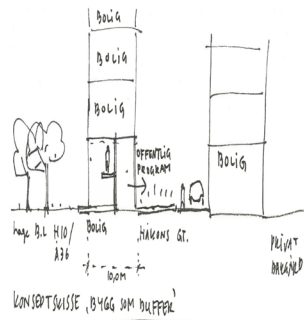 BOLIG
BOLIG
BOLIG
OFFENTLIG
PROGRAM
BOLIG
hage B.L H10/
Å36
BOLIG
HÅKONS GT.
PRIVAT
BAKGÅRD
10,0M
KONSEPTSKISSE "BYGG SOM BUFFER"